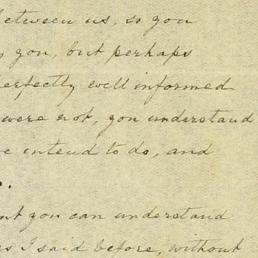 between us, so you
you, but perhaps
perfectly well informed
were not, you understand
intend to do, and
you can understand
as I said before, without